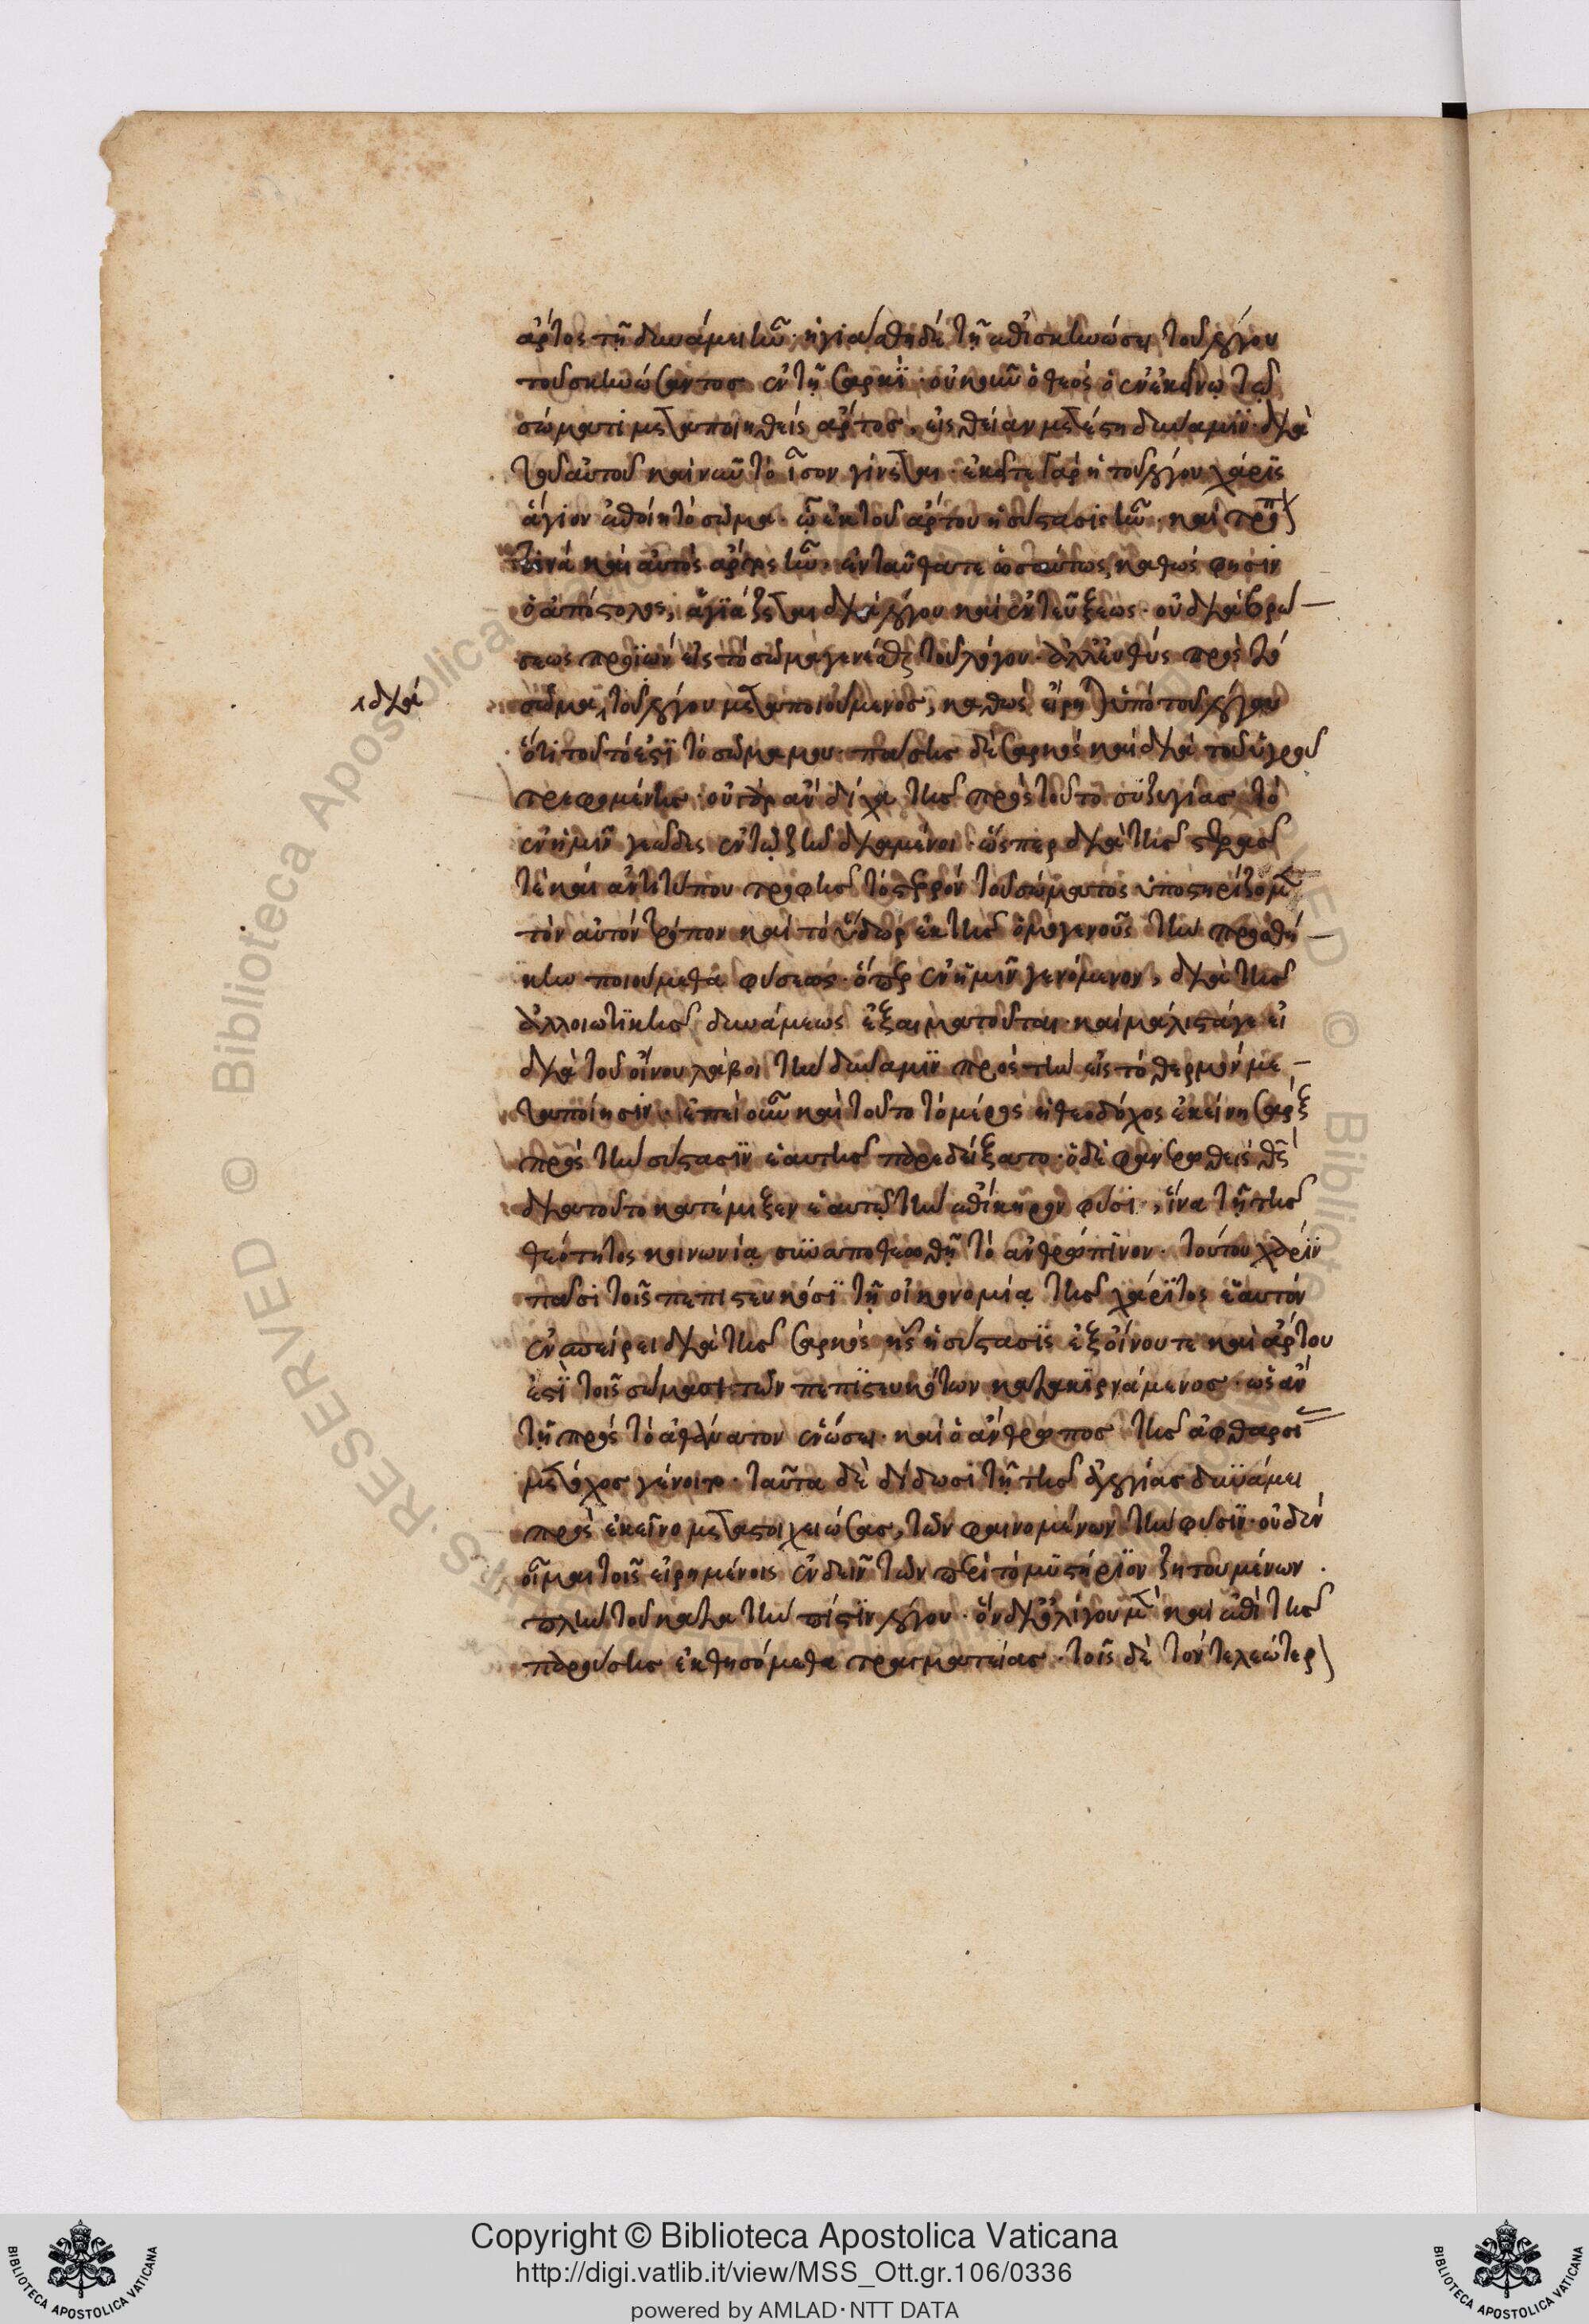 ἄρτος τῇ δυνάμει ἦν· ἡγιάσθη δὲ τῇ ἐπισκηνώσει τοῦ λόγου
τοῦ σκηνώσαντος ἐν τῇ σαρκί· οὐκοῦν ὅθεν ὁ ἐν ἐκείνῳ τῷ
σώματι μεταποιηθεὶς ἄρτος, εἰς θείαν μετέστη δύναμιν· διὰ
τοῦ αὐτοῦ καὶ νῦν τὸ ἴσον γίνεται· ἐκεῖ τε γὰρ ἡ τοῦ λόγου χάρις
ἅγιον ἐποίει τὸ σῶμα· ᾧ ἐκ τοῦ ἄρτου ἡ σύστασις ἦν· καὶ τρόπον
τινὰ καὶ αὐτὸς ἄρτος ἦν· ἐνταῦθά τε ὡσαύτως, καθώς φησιν
ὁ ἀπόστολος, ἁγιάζεται διὰ λόγου καὶ ἐντεύξεως· οὐ διὰ βρώ
σεως προϊὼν εἰς τὸ σῶμα γενέσθαι τοῦ λόγου· ἀλλ' εὐθὺς πρὸς τὸ
διὰ
σῶμα, τοῦ λόγου μεταποιούμενος, καθὼς εἴρηται ὑπὸ τοῦ λόγου
ὅτι τοῦτό ἐστι τὸ σῶμά μου· πάσης δὲ σαρκὸς καὶ διὰ τοῦ ὑγροῦ
τρεφομένης· οὐ γὰρ ἂν δίχα τῆς πρὸς τοῦτο συζυγίας τὸ
ἐν ἡμῖν γεῶδες ἐν τῷ ζῆν διαμένοι· ὥσπερ διὰ τῆς στερρᾶς
τε καὶ ἀντιτύπου τροφῆς τὸ στερρὸν τοῦ σώματος ὑποστηρίζομεν
τὸν αὐτὸν τρόπον καὶ τὸ ὕδωρ ἐκ τῆς ὁμογενοῦς τὴν προσθή
κην ποιούμεθα φύσεως· ὅπερ ἐν ἡμῖν γενόμενον, διὰ τῆς
ἀλλοιωτικῆς δυνάμεως ἐξαιματοῦται· καὶ μάλιστά γε εἰ
διὰ τοῦ οἴνου λάβοι τὴν δύναμιν πρὸς τὴν εἰς τὸ θερμὸν με
ταποίησιν· ἐπεὶ οὖν καὶ τοῦτο τὸ μέρος ἡ θεοδόχος ἐκείνη σὰρξ
πρὸς τὴν σύστασιν ἑαυτῆς παρεδέξατο· ὁ δὲ φανερωθεὶς θεὸς
διὰ τοῦτο κατέμιξεν ἑαυτὸν τῇ ἐπικήρῳ φύσει, ἵνα τῇ τῆς
θεότητος κοινωνίᾳ συναποθεωθῇ τὸ ἀνθρώπινον· τούτου χάριν
πᾶσι τοῖς πεπιστευκόσι τῇ οἰκονομίᾳ τῆς χάριτος ἑαυτὸν
ἐνσπείρει διὰ τῆς σαρκὸς ἧς ἡ σύστασις ἐξ οἴνου τε καὶ ἄρτου
ἐστὶ τοῖς σώμασι τῶν πεπιστευκότων κατακιρνάμενος· ὡς ἂν
τῇ πρὸς τὸ ἀθάνατον ἑνώσει· καὶ ὁ ἄνθρωπος τῆς ἀφθαρσίας
μέτοχος γένοιτο· ταῦτα δὲ δίδωσι τῇ τῆς εὐλογίας δυνάμει
πρὸς ἐκεῖνο μεταστοιχειώσας, τῶν φαινομένων τὴν φύσιν· οὐδὲν
οἶμαι τοῖς εἰρημένοις ἐνδεῖν τῶν περὶ τὸ μυστήριον ζητουμένων
πλὴν τοῦ κατὰ τὴν πίστιν λόγου· ὃν δι' ὀλίγου μὲν καὶ ἐπὶ τῆς
παρούσης ἐκθησόμεθα πραγματείας· τοῖς δὲ τὸν τελεώτερον